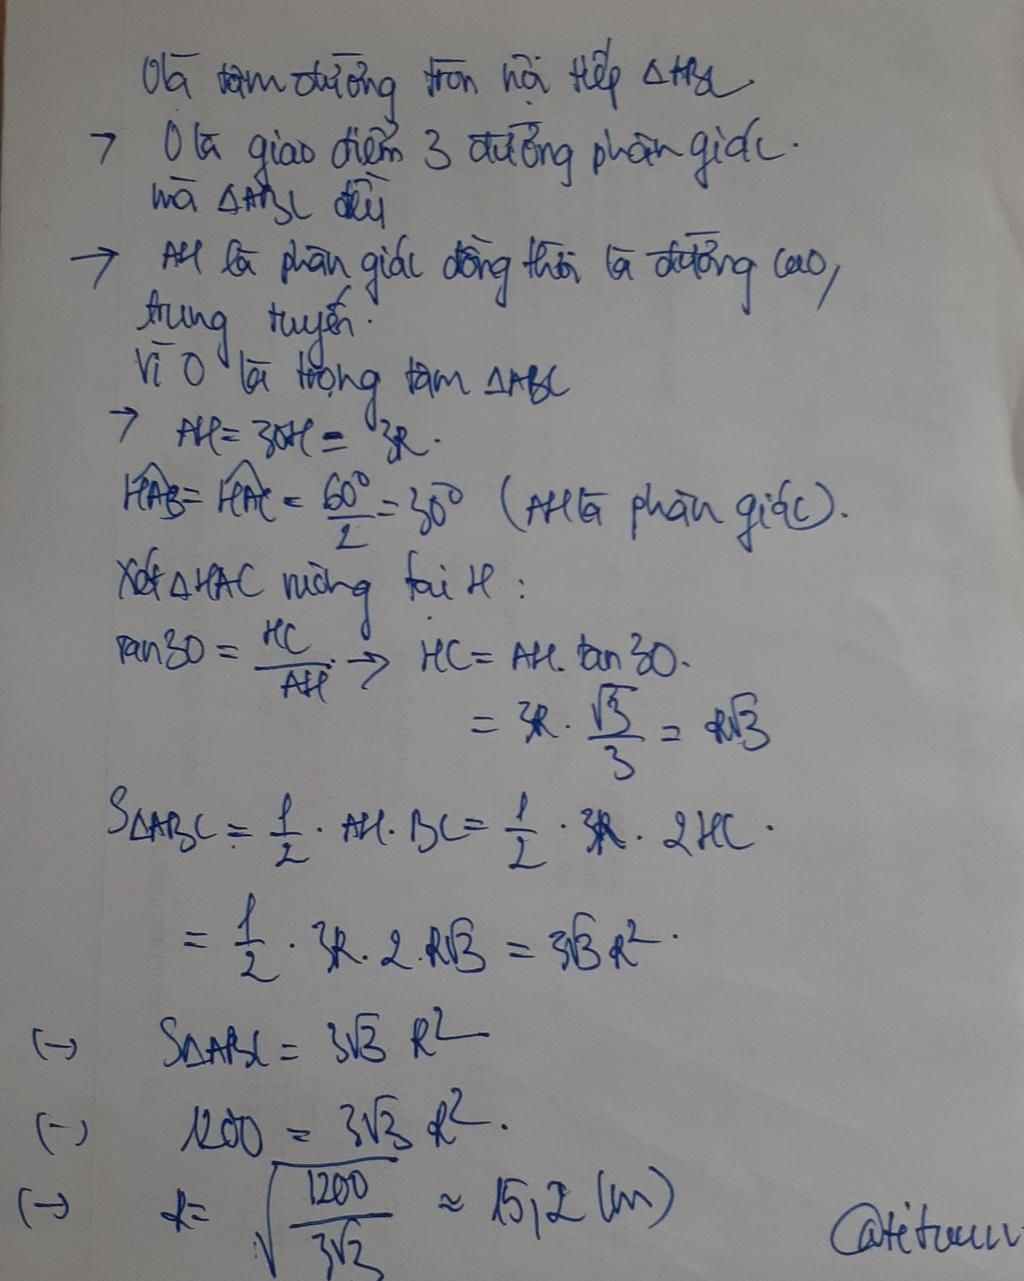 O là tâm đường tròn nội tiếp △ABC
→ O là giao điểm 3 đường phân giác.
mà △ABC đều
→ AH là phân giác đồng thời là đường cao,
trung tuyến.
Vì O là trọng tâm △ABC
→ AH = 3OH = 3R.
HAB = HAC = 60°/2 = 30° (AH là phân giác).
Xét △HAC vuông tại H:
tan30 = HC/AH → HC = AH. tan30.
= 3R. √3/3 = R√3
S△ABC = 1/2 . AH. BC = 1/2 . 3R. 2HC.
= 1/2 . 3R. 2. R√3 = 3√3 R².
(→ S△ABC = 3√3 R²
(→ 1200 = 3√3 R².
(→ R = √(1200/3√3) ≈ 15,2 (m)